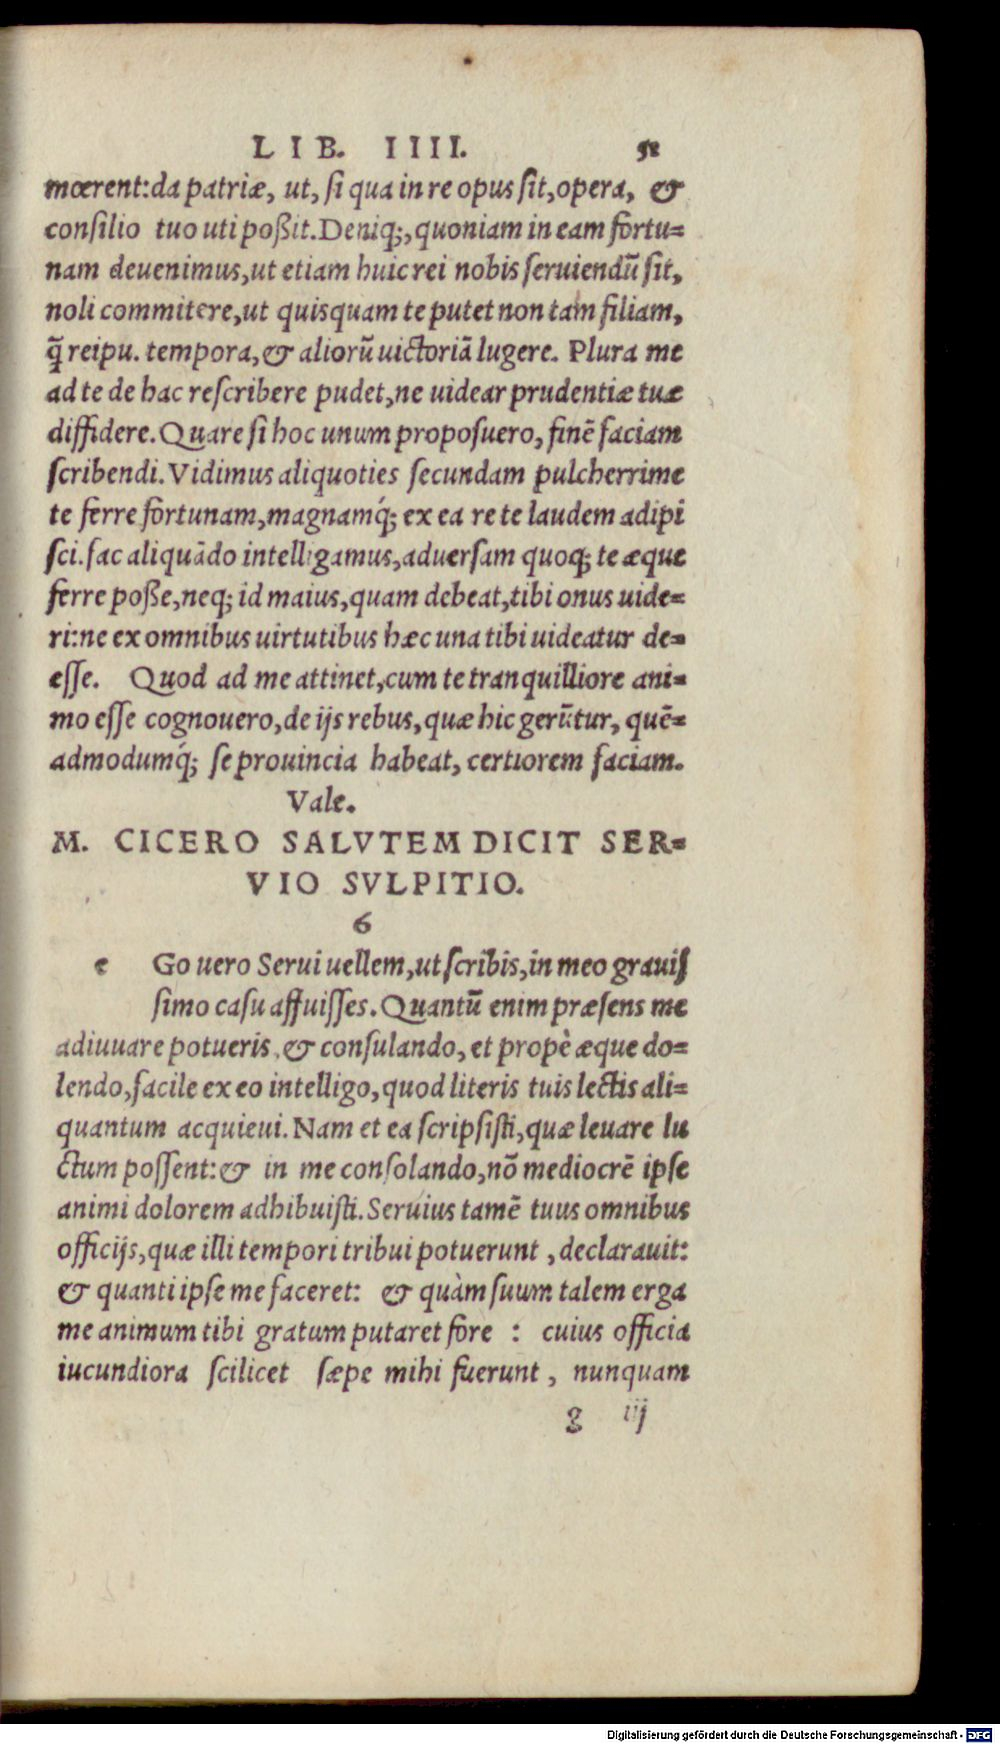 LIB. IIII. 51
mœrent:da patriæ, ut, ſi qua in re opus ſit, opera, &
conſilio tuo uti poßit. Deniq;, quoniam in eam fortu=
nam deuenimus, ut etiam huic rei nobis ſeruiendū ſit,
noli commitere, ut quisquam te putet non tam filiam,
q̄ reipu. tempora, & aliorū uictoriā lugere. Plura me
ad te de hac reſcribere pudet, ne uidear prudentiæ tuæ
diffidere. Quare ſi hoc unum propoſuero, finē faciam
ſcribendi. Vidimus aliquoties ſecundam pulcherrime
te ferre fortunam, magnamq́; ex ea re te laudem adipi
ſci. fac aliquādo intelligamus, aduerſam quoq; te æque
ferre poße, neq; id maius, quam debeat, tibi onus uide=
ri: ne ex omnibus uirtutibus hæc una tibi uideatur de=
eſſe. Quod ad me attinet, cum te tranquilliore ani=
mo eſſe cognouero, de ijs rebus, quæ hic gerūtur, quē=
admodumq́; ſe prouincia habeat, certiorem faciam.
Vale.
M. CICERO SALVTEM DICIT SER=
VIO SVLPITIO.
6
e Go uero Serui uellem, ut ſcribis, in meo grauiſ
ſimo caſu affuiſſes. Quantū enim præſens me
adiuuare potueris, & conſulando, et propè æque do=
lendo, facile ex eo intelligo, quod literis tuis lectis ali=
quantum acquieui. Nam et ea ſcripſiſti, quæ leuare lu
ctum poſſent: & in me conſolando, nō mediocrē ipſe
animi dolorem adhibuiſti. Seruius tamē tuus omnibus
officijs, quæ illi tempori tribui potuerunt, declarauit:
& quanti ipſe me faceret: & quàm ſuum talem erga
me animum tibi gratum putaret fore : cuius officia
iucundiora ſcilicet ſæpe mihi fuerunt, nunquam
g iij
Digitalisierung gefördert durch die Deutsche Forschungsgemeinschaft - DFG